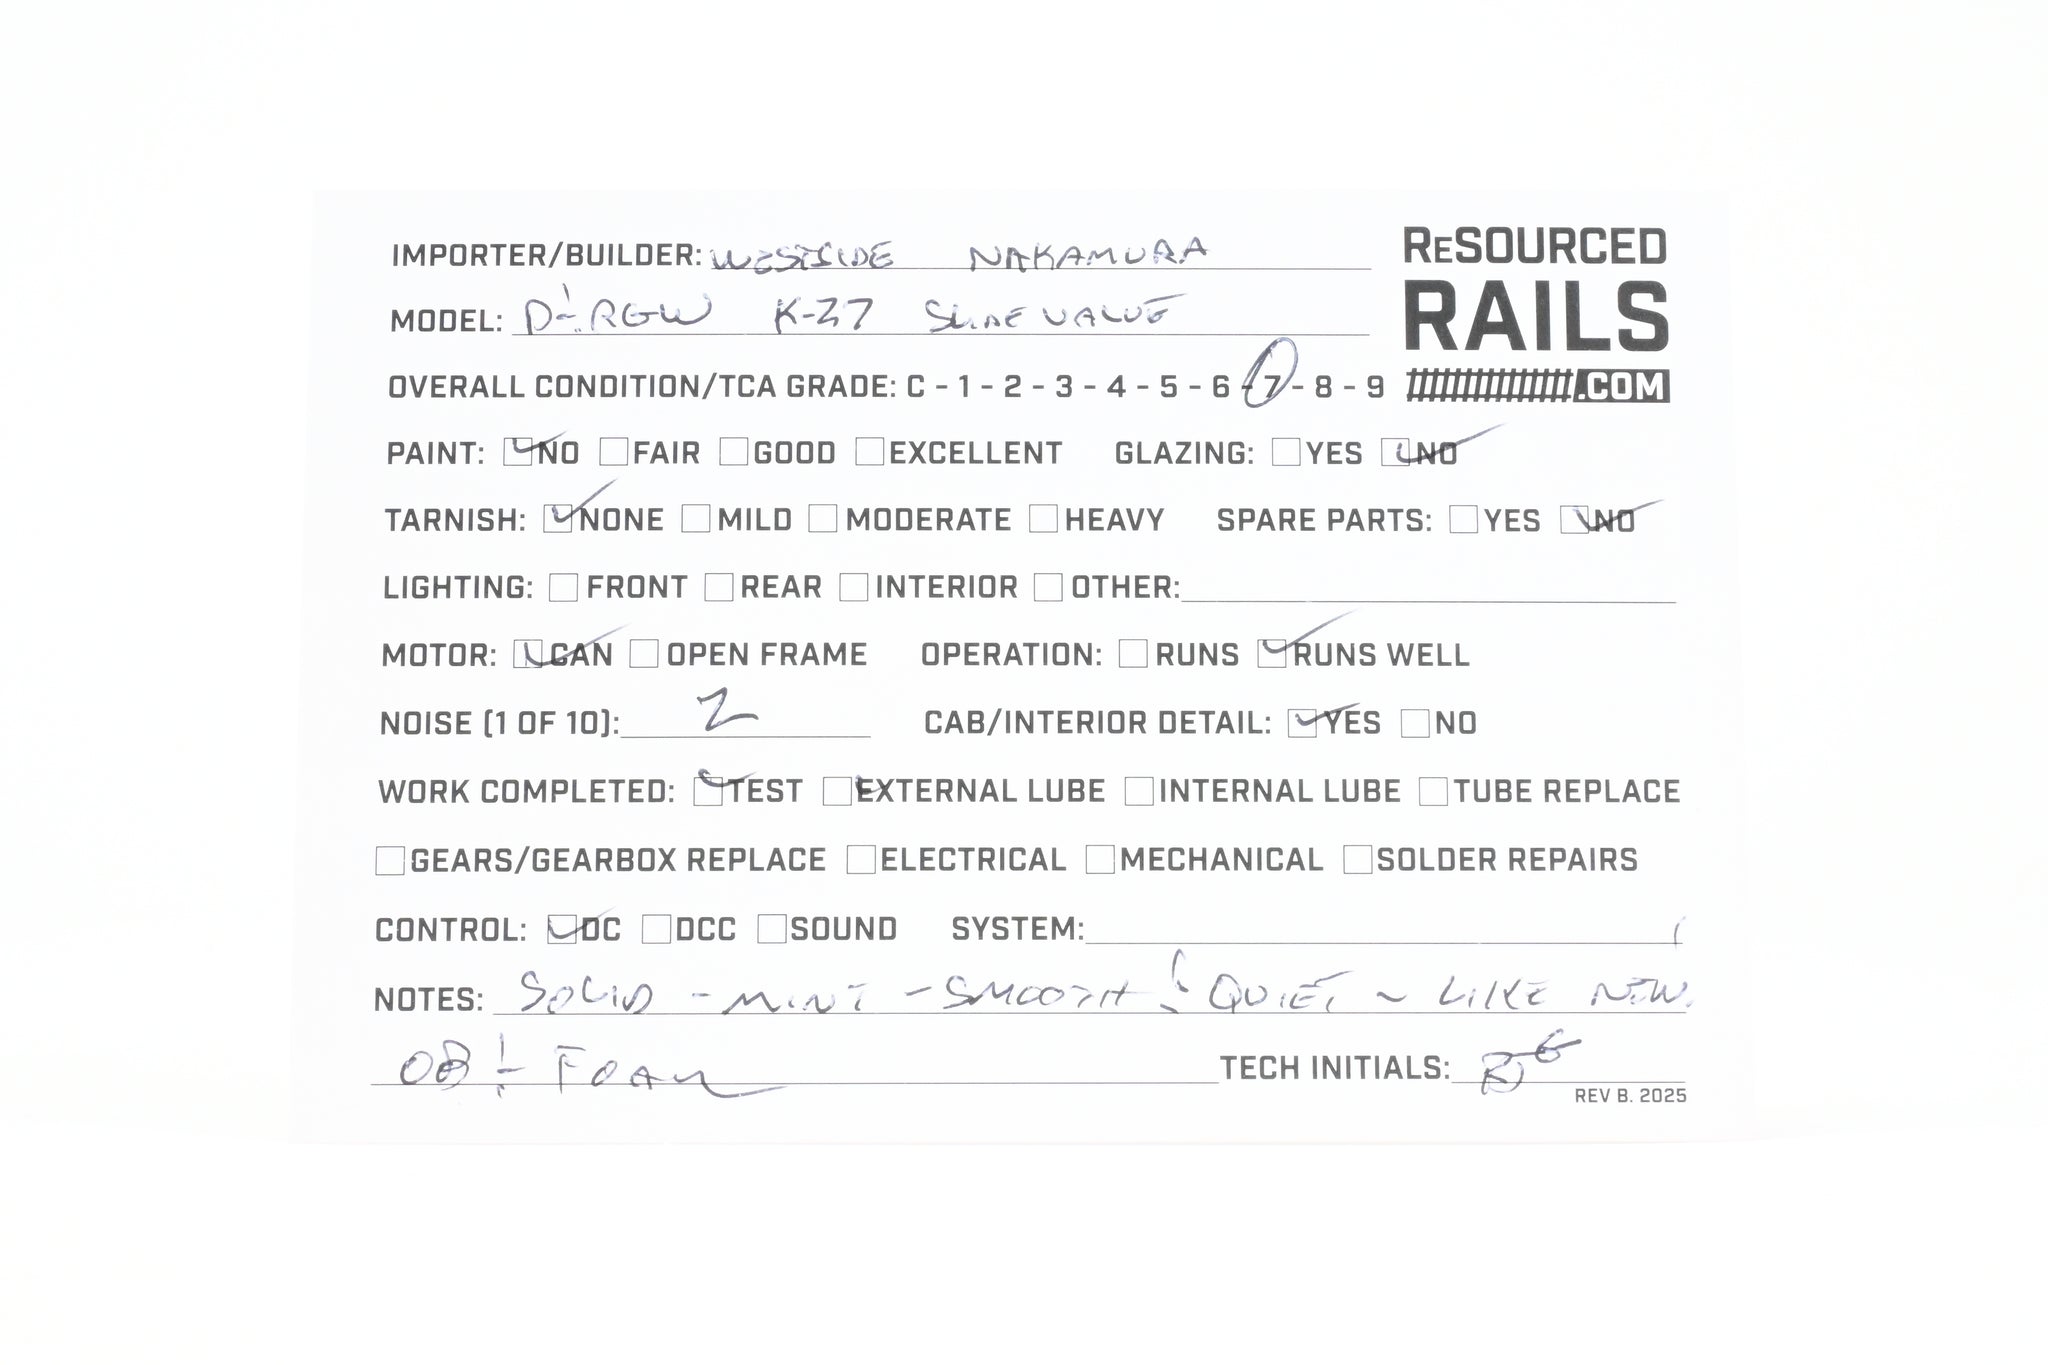 IMPORTER/BUILDER: WESTSIDE NAKAMURA
MODEL: D&RGW K-27 SLIDE VALVE
RESOURCED
RAILS
.COM
OVERALL CONDITION/TCA GRADE: C - 1 - 2 - 3 - 4 - 5 - 6 - 7 - 8 - 9
PAINT: NO FAIR GOOD EXCELLENT GLAZING: YES NO
TARNISH: NONE MILD MODERATE HEAVY SPARE PARTS: YES NO
LIGHTING: FRONT REAR INTERIOR OTHER:
MOTOR: CAN OPEN FRAME OPERATION: RUNS RUNS WELL
NOISE (1 OF 10): 2 CAB/INTERIOR DETAIL: YES NO
WORK COMPLETED: TEST EXTERNAL LUBE INTERNAL LUBE TUBE REPLACE
GEARS/GEARBOX REPLACE ELECTRICAL MECHANICAL SOLDER REPAIRS
CONTROL: DC DCC SOUND SYSTEM:
NOTES: SOLID - MINT - SMOOTH & QUIET ~ LIKE NEW.
OB & FOAM TECH INITIALS:
REV B. 2025